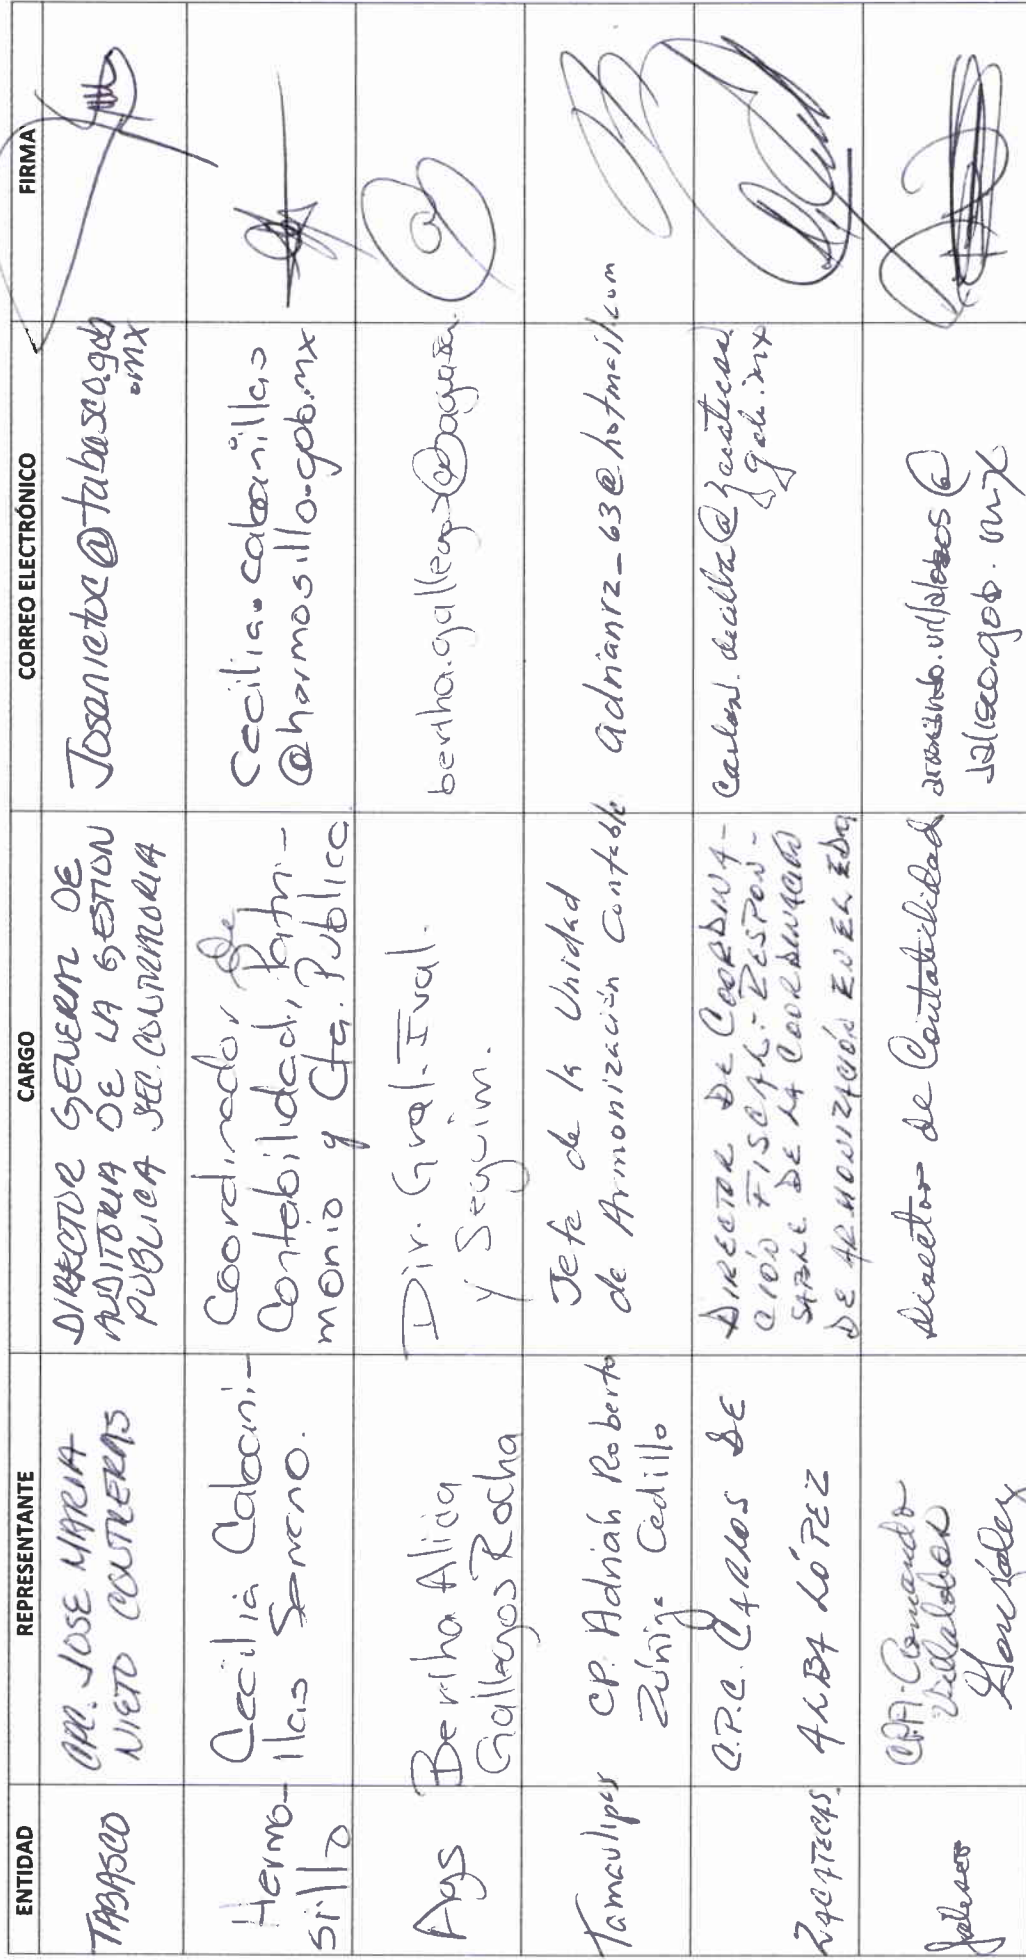 ENTIDAD REPRESENTANTE CARGO CORREO ELECTRÓNICO FIRMA
TABASCO
CPC. JOSE MARIA
NIETO CONTRERAS
DIRECTOR GENERAL DE
AUDITORIA DE LA GESTION
PUBLICA SEC. CONTRALORIA
Josenietoc@tabasco.gob
.mx
Hermo-
sillo
Cecilia Cabani-
llas Serrano.
Coordinador de
Contabilidad, Patri-
monio y Cta. Pública
Cecilia.cabanillas
@hermosillo.gob.mx
Ags
Bertha Alicia
Gallegos Rocha
Dir. Gral. Eval.
y Seguim.
bertha.gallegos@
Tamaulipas
CP. Adrián Roberto
Zúñiga Cedillo
Jefe de la Unidad
de Armonización Contable
adrianrz_63@hotmail.com
ZACATECAS.
C.P.C. CARLOS DE
ALBA LÓPEZ
DIRECTOR DE COORDINA-
CIÓN FISCAL.- RESPON-
SABLE DE LA COORDINACIÓN
DE ARMONIZACIÓN EN EL EDO
carlos.dealba@zacatecas
gob.mx
Jalisco
Armando
Villalobos
González
Director de Contabilidad
armando.villalobos@
jalisco.gob.mx